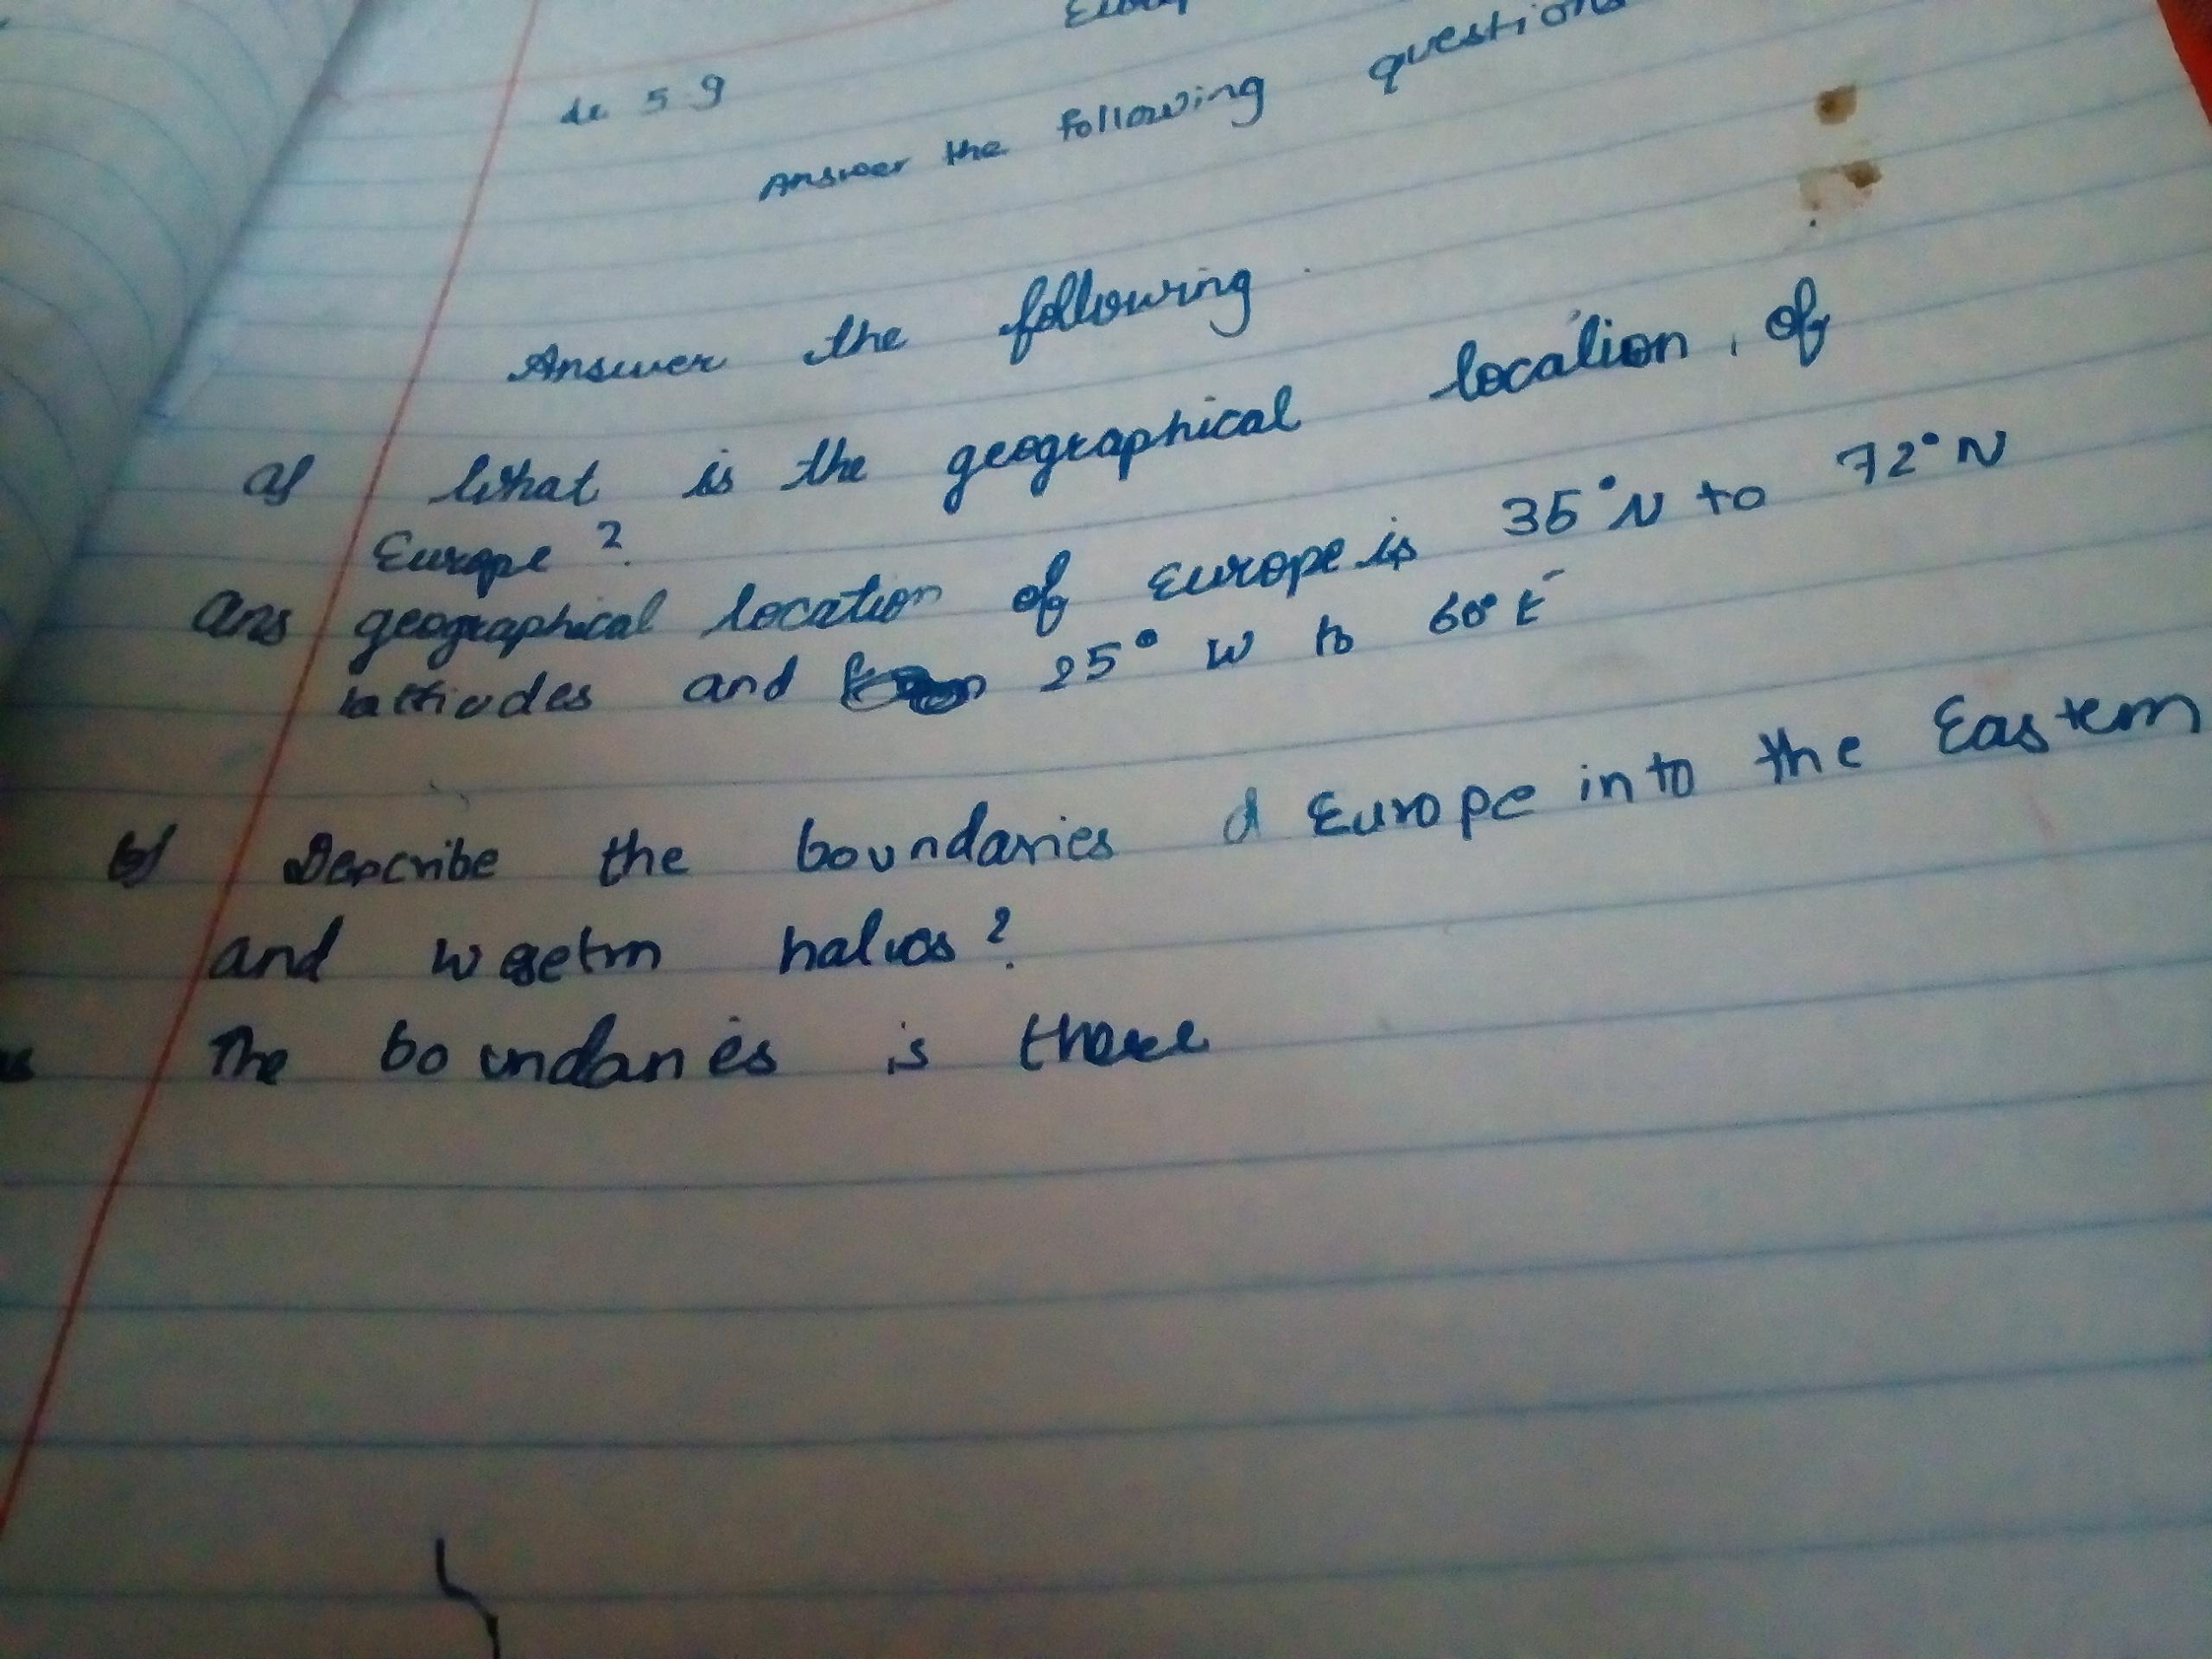 de 59
Answer the following questions
Answer the following
a) What is the geographical location, of
Europe ?
Ans geographical location of Europe is 35°N to 72°N
lattiudes and 25° W to 60° E
b) Describe the boundaries of Europe into the Eastern
and halves?
The boundaries is there